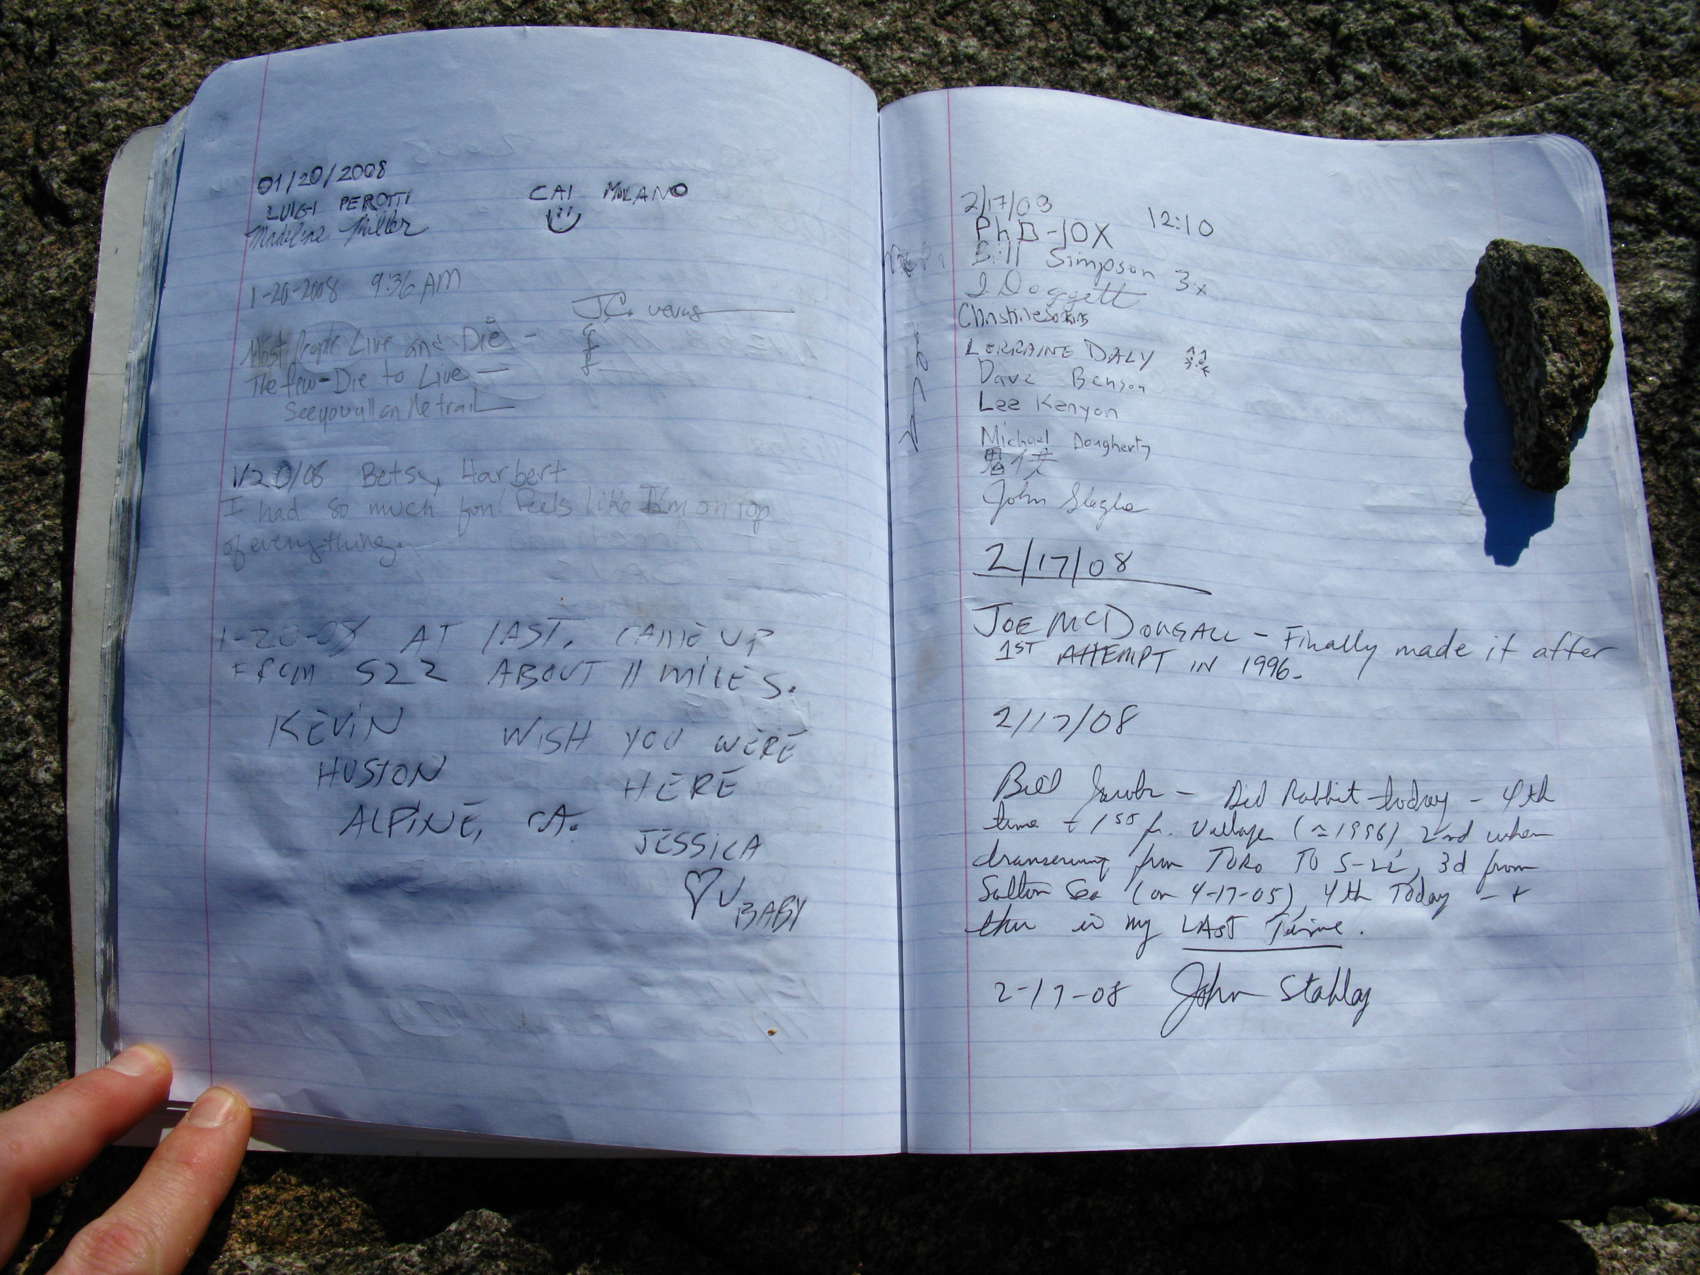 01/20/2008
LUIGI PEROTTI CAI MILANO
Madeline Miller
1-20-2008 9:36 AM
JC
Most People Live and Die -
The few - Die to Live -
See you all on the trail
1/20/08 Betsy Harbert
I had so much fun! Feels like I'm on top
of everything.
1-20-08 AT LAST, CAME UP
from S22 ABOUT 11 MILES.
KEVIN
HUSTON
ALPINE, CA.
WISH YOU WERE
HERE
JESSICA
♡ U BABY
2/17/08 12:10
PhD-JOX
Bill Simpson 3x
J Doggett
Christine
LORRAINE DALY
Dave Benson
Lee Kenyon
Michael Dougherty
John
2/17/08
JOE MCDOUGALL - Finally made it after
1ST ATTEMPT IN 1996.
2/17/08
Bill - Did Rabbit today - 4th
time + 1st fr. Village (≈1996), 2nd when
from TORO TO S-22, 3d from
Salton Sea (on 4-17-05), 4th Today - +
this is my LAST Time.
2-17-08 John Stahlay